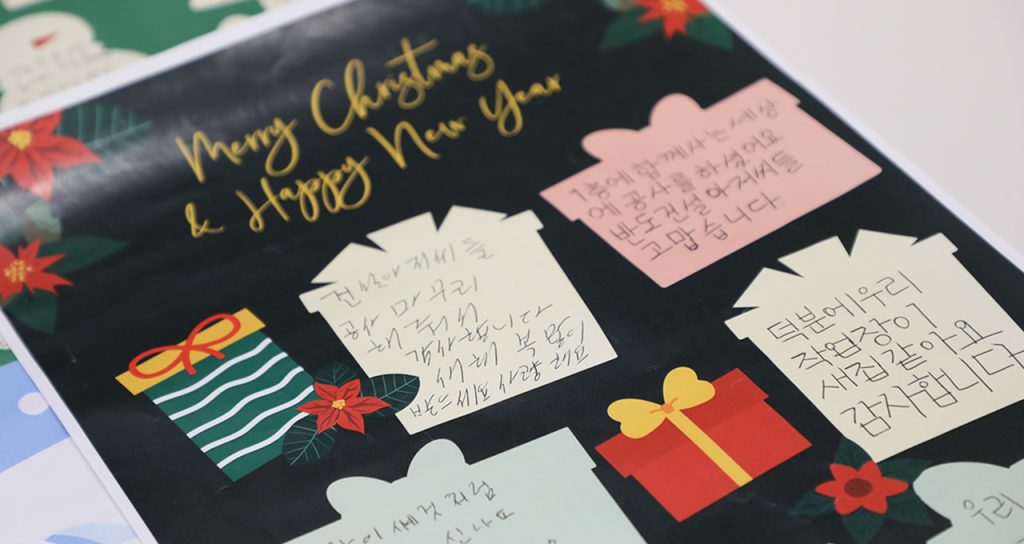 Merry Christmas
& Happy New Year
1층에 함께사는세상
에 공사를 하셨어요
반도건설 아저씨들
고맙습니다
건설아저씨들
공사 마무리
해주셔서
감사합니다
새해 복 많이
덕분에우리
작업장이
새집같아요
감사합니다
새것처럼
신나요
우리